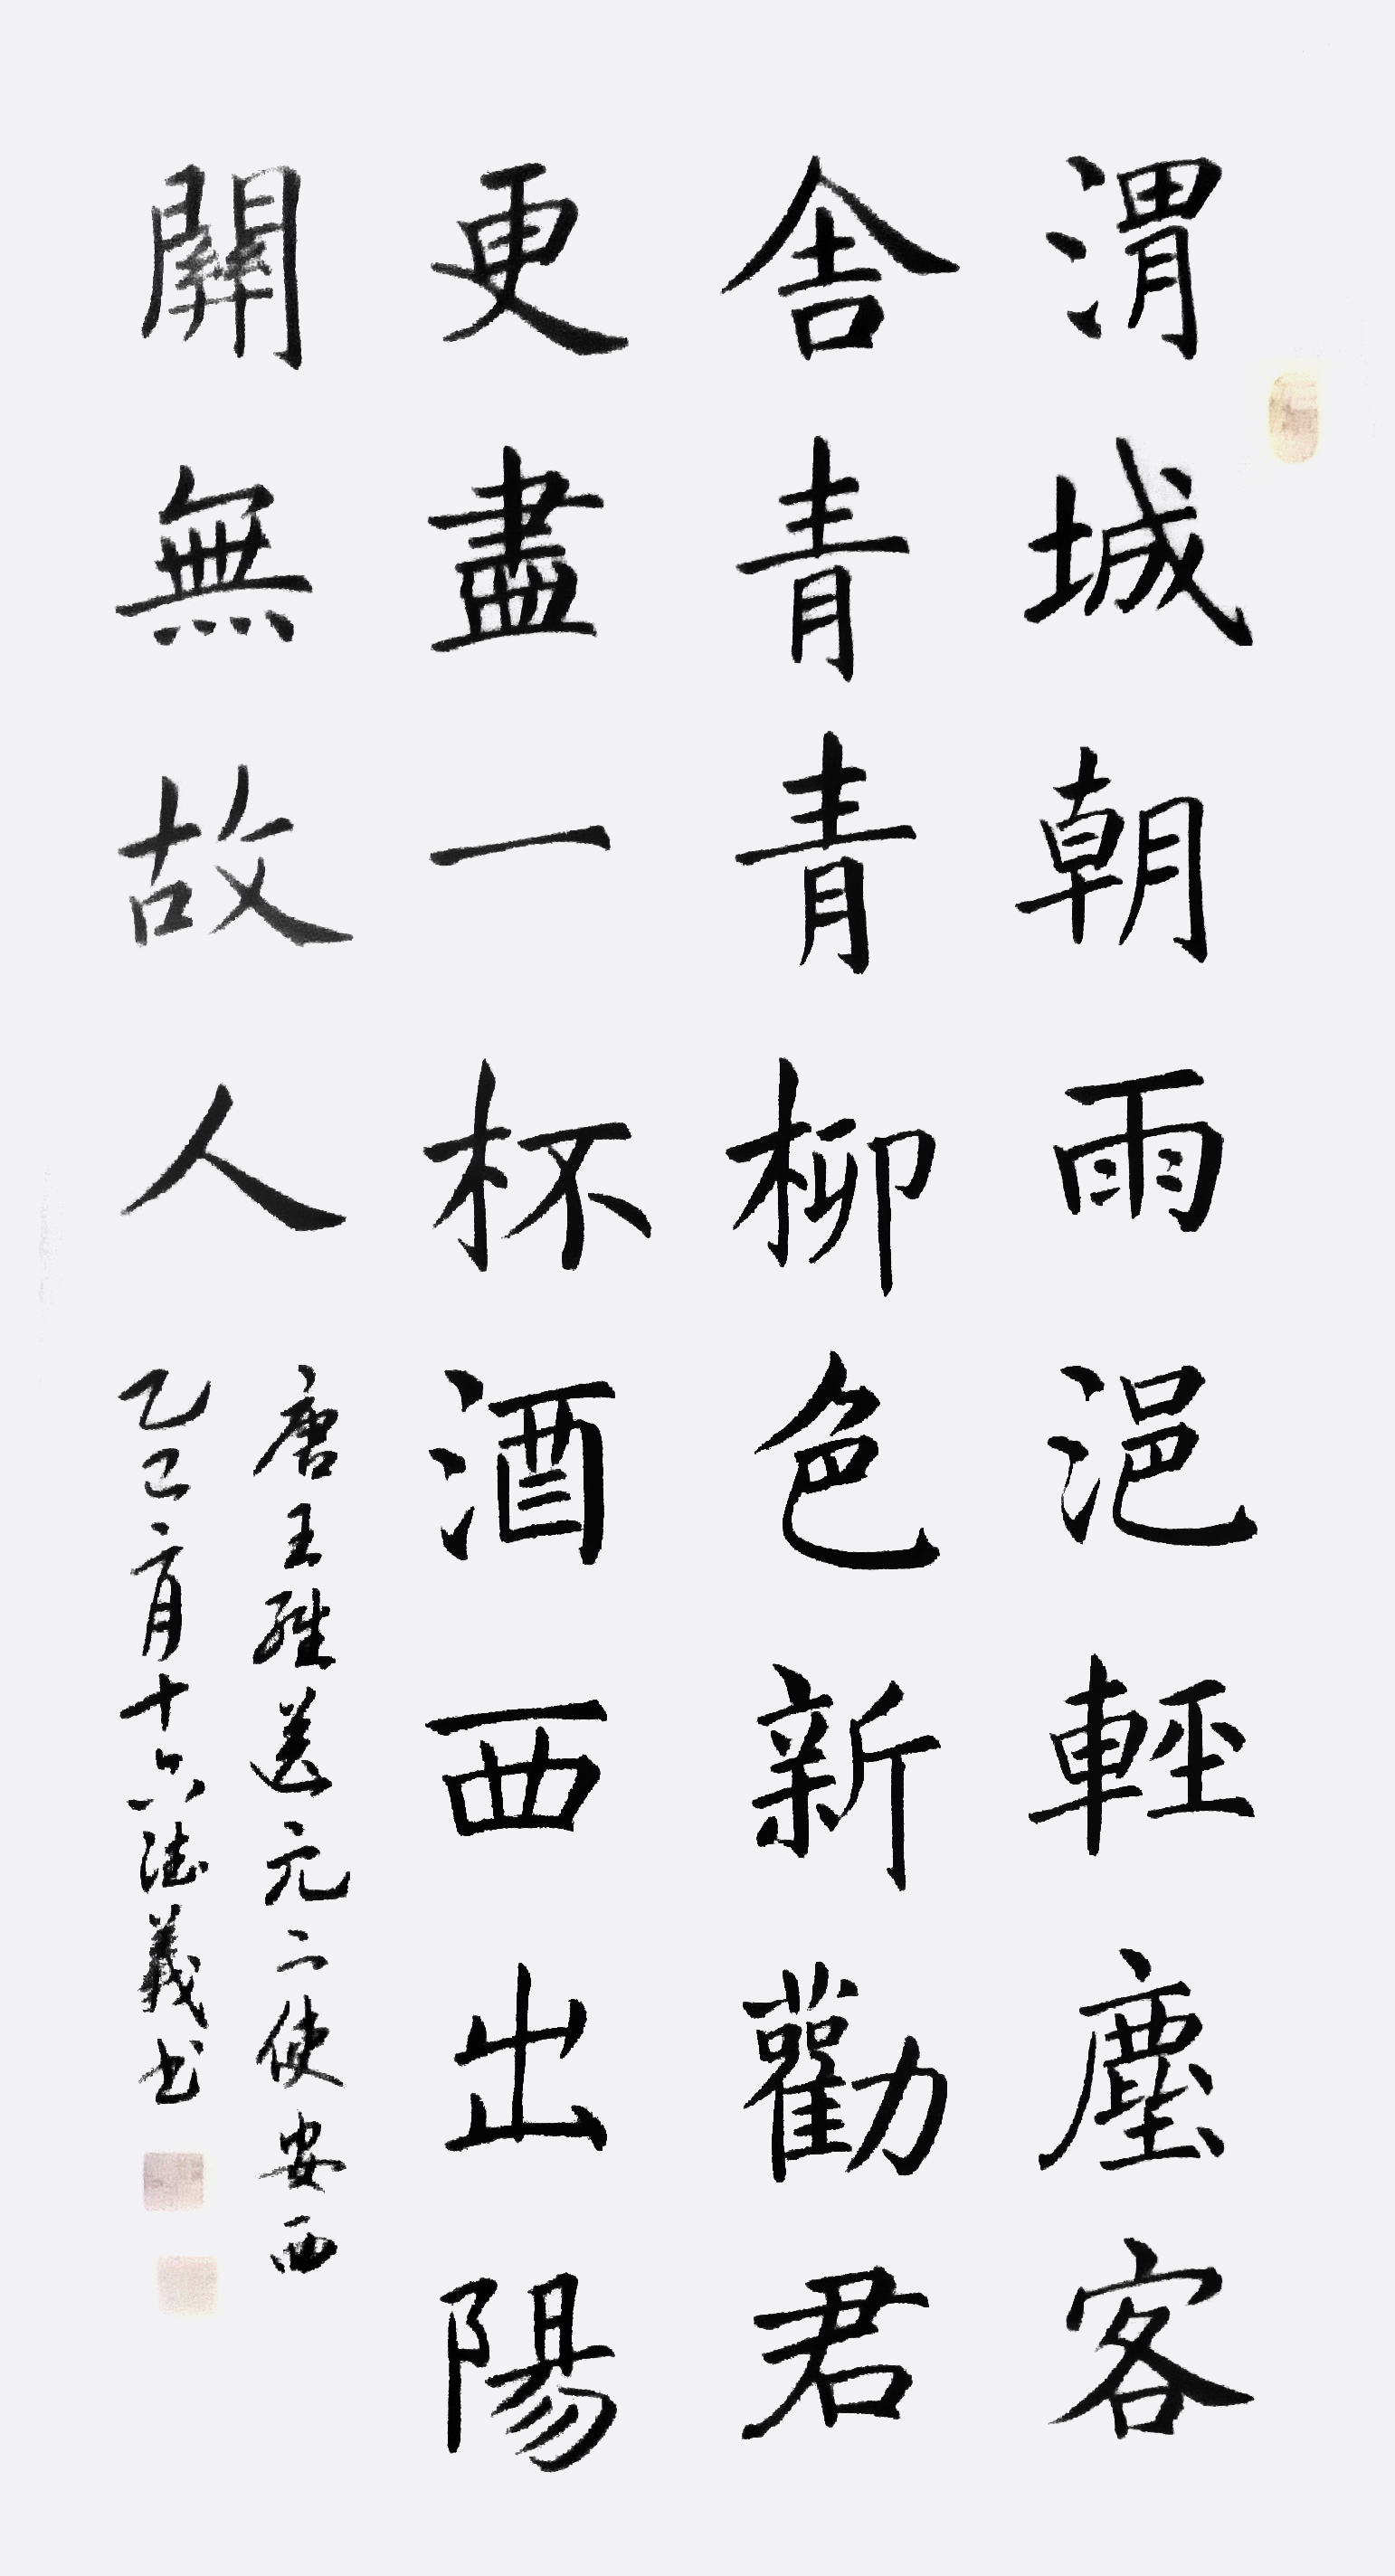 渭城朝雨浥輕塵客
舍青青柳色新勸君
更盡一杯酒西出陽
關無故人
唐王維送元二使安西
乙巳六月十六德義书